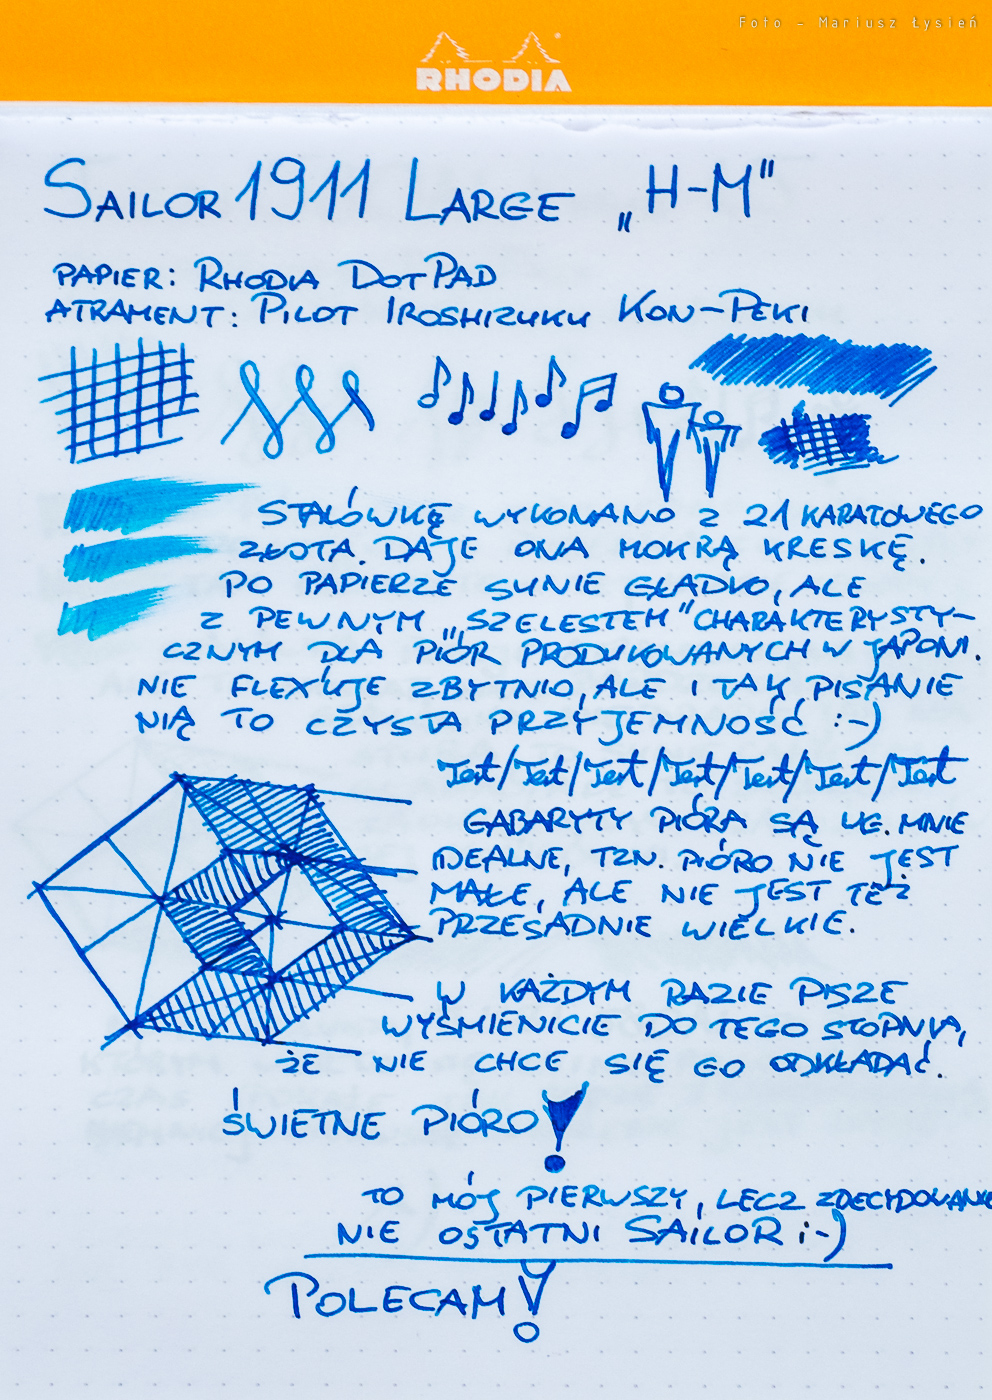 Foto - Mariusz Łysień
RHODIA
SAILOR 1911 LARGE „H-M”
PAPIER: RHODIA DOTPAD
ATRAMENT: PILOT IROSHIZUKU KON-PEKI
STALÓWKĘ WYKONANO Z 21 KARATOWEGO
ZŁOTA. DAJE ONA MOKRĄ KRESKĘ.
PO PAPIERZE SUNIE GŁADKO, ALE
Z PEWNYM „SZELESTEM” CHARAKTERYSTY-
CZNYM DLA PIÓR PRODUKOWANYCH W JAPONI.
NIE FLEXUJE ZBYTNIO, ALE I TAK PISANIE
NIĄ TO CZYSTA PRZYJEMNOŚĆ :-)
Test/Test/Test/Test/Test/Test/Test
GABARYTY PIÓRA SĄ WG. MNIE
IDEALNE, TZN. PIÓRO NIE JEST
MAŁE, ALE NIE JEST TEŻ
PRZESADNIE WIELKIE.
W KAŻDYM RAZIE PISZE
WYŚMIENICIE DO TEGO STOPNIA,
ŻE NIE CHCE SIĘ GO ODKŁADAĆ.
ŚWIETNE PIÓRO!
TO MÓJ PIERWSZY, LECZ ZDECYDOWANIE
NIE OSTATNI SAILOR ;-)
POLECAM!